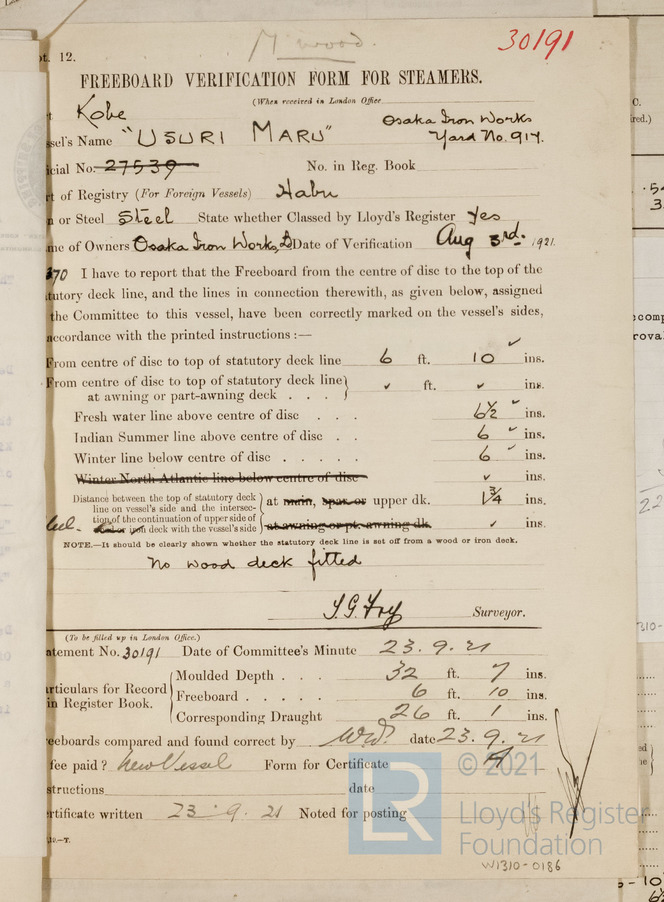 M wood.
30191
pt. 12.
FREEBOARD VERIFICATION FORM FOR STEAMERS.
(When received in London Office
t Kobe
ssel's Name "USURI MARU" Osaka Iron Works
Yard No. 917.
icial No. 27539 No. in Reg. Book
t of Registry (For Foreign Vessels) Habu
n or Steel Steel State whether Classed by Lloyd's Register Yes
me of Owners Osaka Iron Works, Ld Date of Verification Aug 3rd. 1921.
70 I have to report that the Freeboard from the centre of disc to the top of the
tutory deck line, and the lines in connection therewith, as given below, assigned
the Committee to this vessel, have been correctly marked on the vessel's sides,
accordance with the printed instructions :—
From centre of disc to top of statutory deck line 6 ft. 10 ✓ ins.
From centre of disc to top of statutory deck line
at awning or part-awning deck . . . ✓ ft. ✓ ins.
Fresh water line above centre of disc . . . 6½ ✓ ins.
Indian Summer line above centre of disc . . 6 ✓ ins.
Winter line below centre of disc . . . . . 6 ✓ ins.
Winter North Atlantic line below centre of disc ✓ ins.
Distance between the top of statutory deck
line on vessel's side and the intersec-
tion of the continuation of upper side of
iron deck with the vessel's side
at main, spar or upper dk. 1¾ ins.
at awning or pt. awning dk. ✓ ins.
NOTE.—It should be clearly shown whether the statutory deck line is set off from a wood or iron deck.
No wood deck fitted
S.G. Fry Surveyor.
(To be filled up in London Office.)
atement No. 30191 Date of Committee's Minute 23.9.21
articulars for Record
in Register Book.
Moulded Depth . . . 32 ft. 7 ins.
Freeboard . . . . . 6 ft. 10 ins.
Corresponding Draught 26 ft. 1 ins.
eeboards compared and found correct by date 23.9.21
fee paid ? New Vessel Form for Certificate
structions date
rtificate written 23.9.21 Noted for posting
LR
© 2021
Lloyd's Register
Foundation
W1310-0186